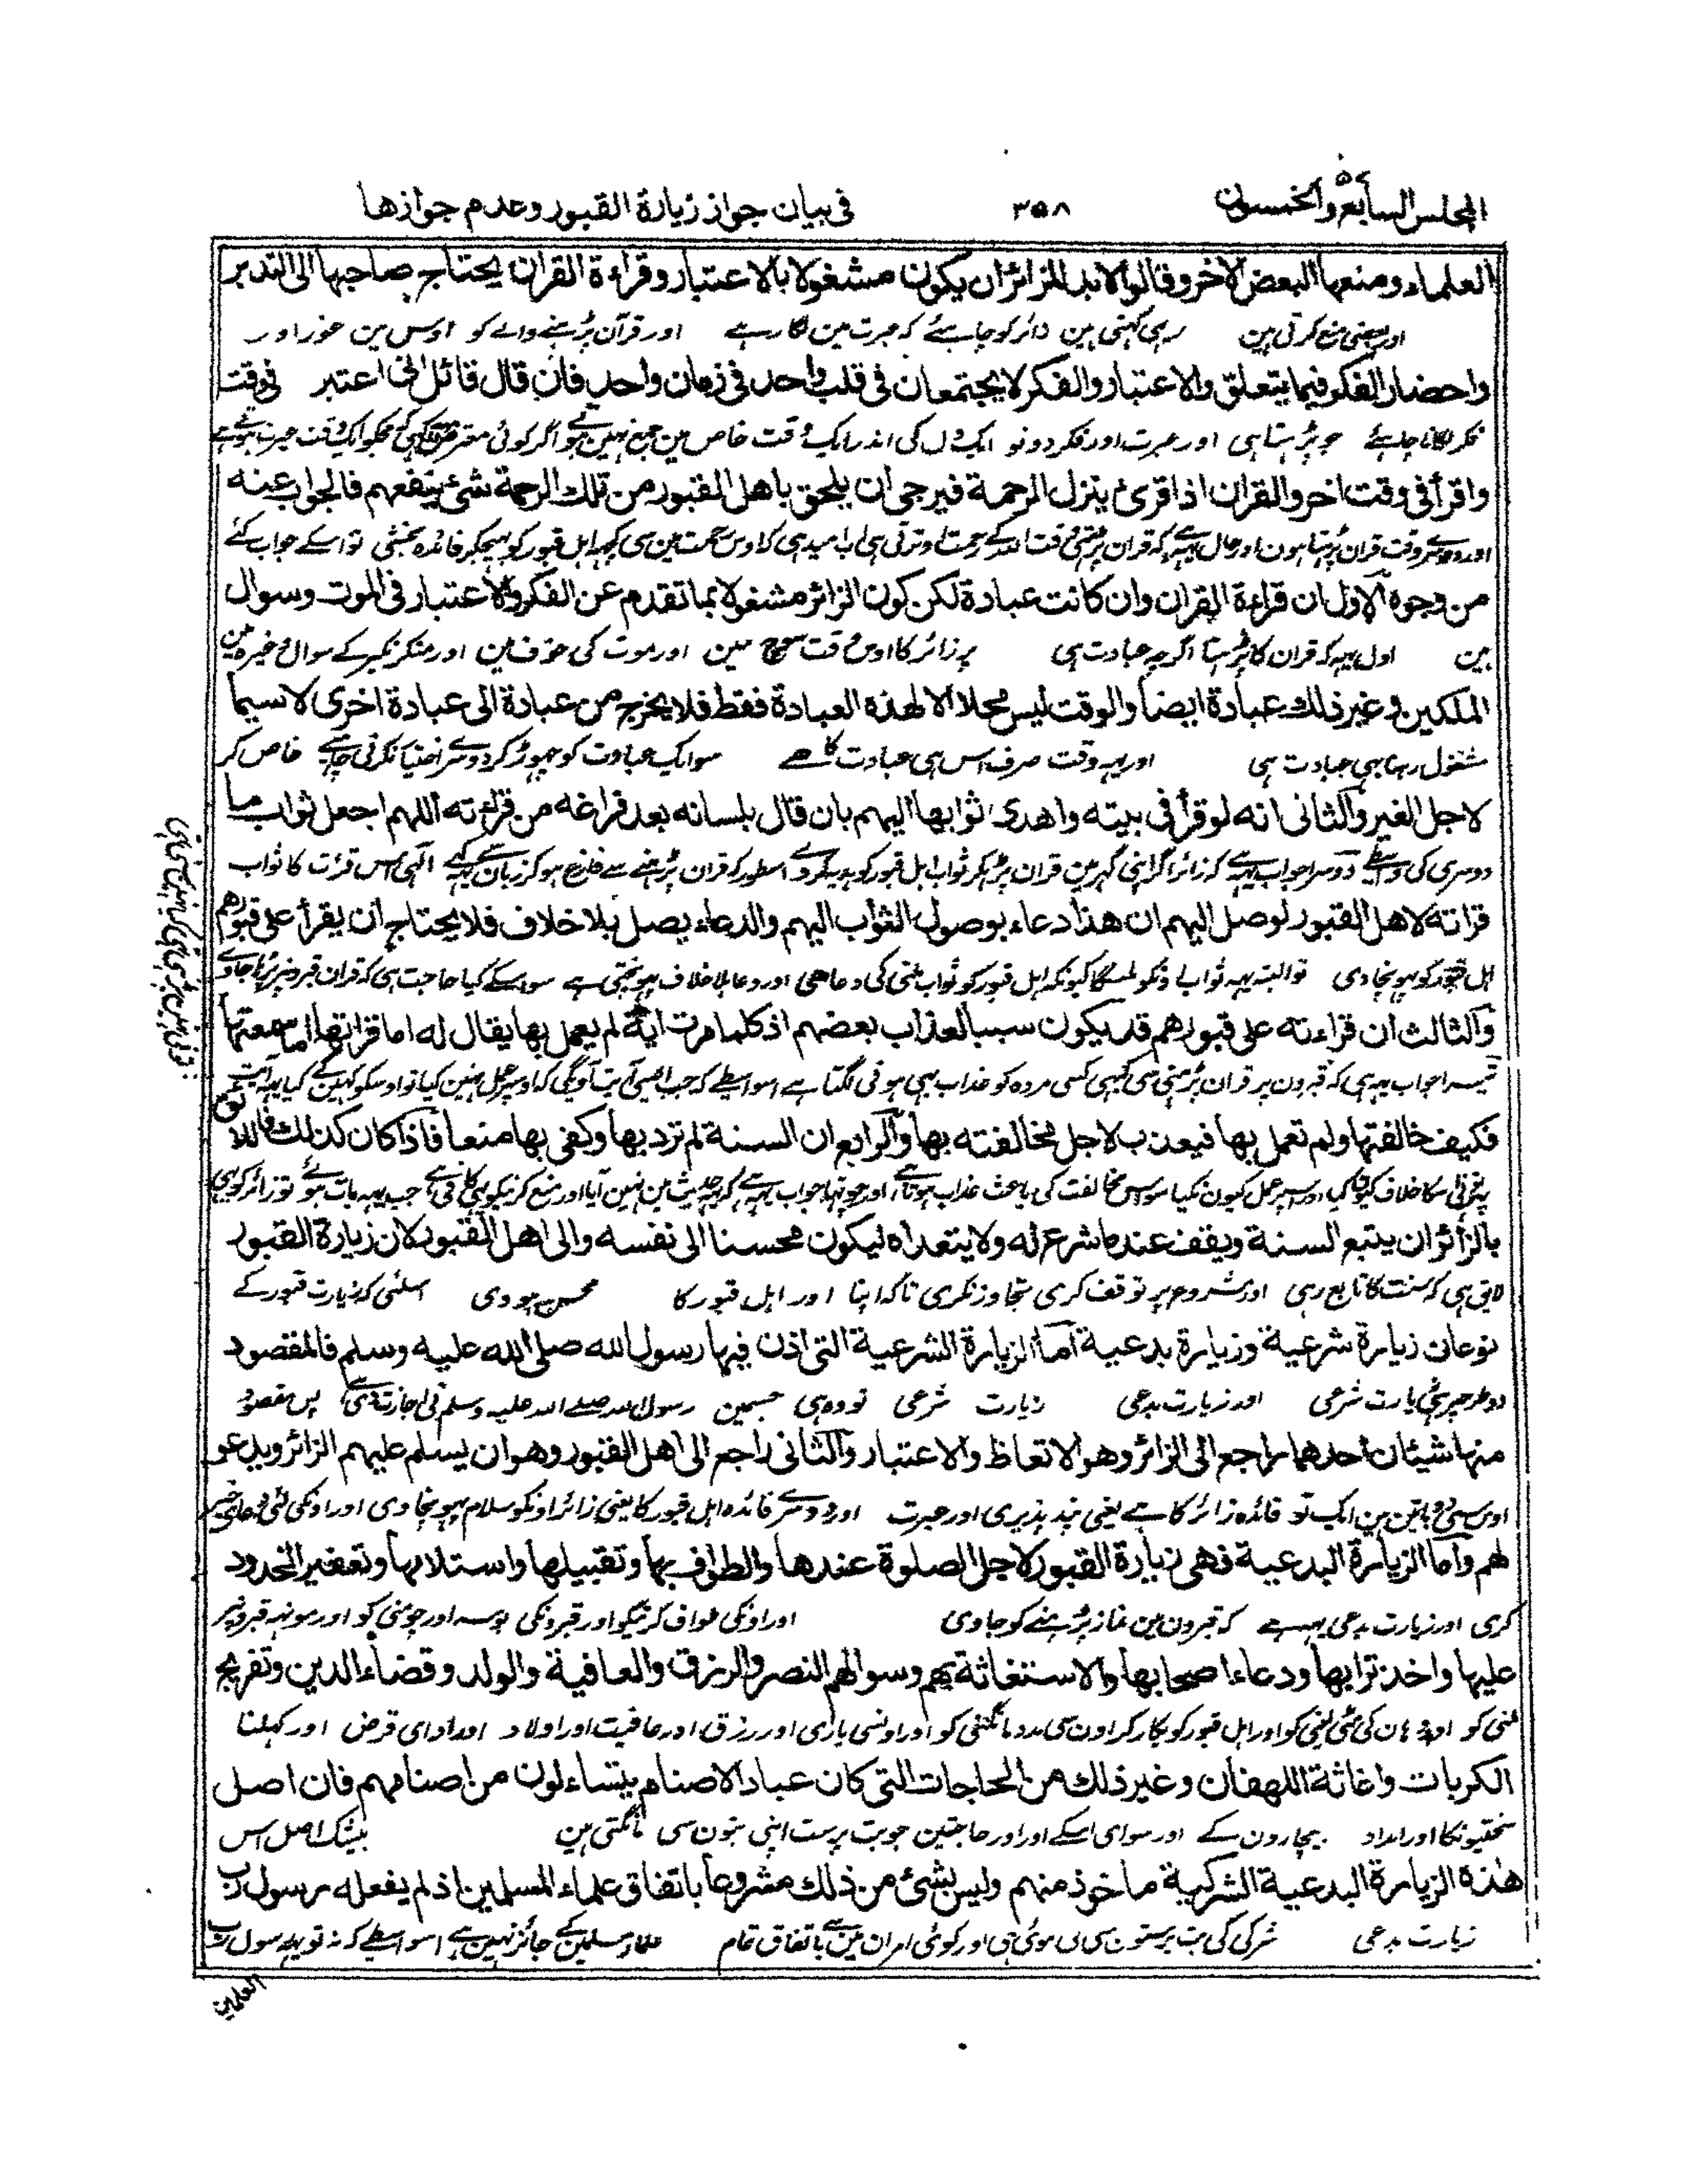 المجلس السابع والخمسون ۳۵۸ فى بيان جواز زيارة القبور وعدم جوازها
العلماء ومنعها البعض الاخر وقالوا لابد للزائر ان يكون مشغولا بالاعتبار وقراءة القران يحتاج صاحبها الى التدبر
اور بعضى منع كرتى ہین زائر كو چاہئے كہ عبرت مین لگا رہے اور قرآن پڑہنے والے كو اوس مین غور اور
واحضار الفكر فيما يتعلق والاعتبار والفكر لا يجتمعان فى قلب واحد فى زمان واحد فان قال قائل انى اعتبر فى وقت
فكر لگانا چاہئے جو پڑہتا ہی اور عبرت اور فكر دونو ایک دل كی اندر ایک وقت خاص مین جمع نہین ہوتے اگر كوئی
واقرأ فى وقت اخر والقران اذا قرئ ينزل الرحمة فيرجى ان يلحق باهل القبور من تلك الرحمة شئ ينفعهم فالجواب عنه
اور دوسرے وقت قران پڑہتا ہون اور حال یہہ ہے كہ قران پڑہتی وقت اللہ كے رحمت اوترتی ہی تو اسكے جواب كئے
من وجوه الاول ان قراءة القران وان كانت عبادة لكن كون الزائر مشغولا بما تقدم عن الفكر والاعتبار فى الموت وسوال
ہین اول یہہ كہ قران كا پڑہنا اگرچہ عبادت ہی پر زائر كا اوس وقت سوچ مین اور موت كی خوف مین اور منكر نكیر كے سوال وغیرہ مین
الملكين وغير ذلك عبادة ايضا والوقت ليس محلا الا لهذه العبادة فقط فلا يخرج من عبادة الى عبادة اخرى لا سيما
مشغول رہنا بہی عبادت ہی اور یہہ وقت صرف اس ہی عبادت كا ہے سو ایک عبادت كو چہوڑ كر دوسرے اختیار نكرنی چاہیے خاص كر
لاجل الغير والثانى انه لو قرأ فى بيته واهدى ثوابها اليهم بان قال بلسانه بعد فراغه من قراءته اللهم اجعل ثواب ما
دوسری كی واسطے دوسرا جواب یہہ ہے كہ زائر اگر اپنی گہر مین قران پڑہكر ثواب اہل قبور كو ہدیہ كر دے اسطور كہ قران پڑہنے سے فارغ ہو كر زبان سے كہے الہی اس قرئت كا ثواب
قرأته لاهل القبور لوصل اليهم ان هذا دعاء بوصول الثواب اليهم والدعاء يصل بلا خلاف فلا يحتاج ان يقرأ على قبورهم
اہل قبور كو پہونچا دی تو البتہ یہہ ثواب اونكو ملیگا كیونكہ اہل قبور كو ثواب ملنی كی دعا ہی اور دعا بلا خلاف پہونچتی ہے سو اسكے كیا حاجت ہی كہ قران قبرونپر پڑہا جاوے
والثالث ان قراءته على قبورهم قد يكون سببا لعذاب بعضهم اذ كلما مرت اية لم يعمل بها يقال له اما قرأتها اما سمعتها
تیسرا جواب یہہ ہی كہ قبرون پر قران پڑہنی سی كبہی كسی مردہ كو عذاب بہی ہونی لگتا ہے اسواسطے كہ جب ایسی آیت آویگی كہ اوسپر عمل نہین كیا تو اوسكو كہین گے كیا یہہ آیت
فكيف خالفتها ولم تعمل بها فيعذب لاجل مخالفته بها والرابع ان السنة لم ترد بها وكفى بها منعا فاذا كان كذلك فاللائق
اور چوتہا جواب یہہ ہے كہ یہہ حدیث مین نہین آیا اور منع كرنیكو یہی كافی ہے جب یہہ بات ہوئے تو زائر كو یہی
بالزائر ان يتبع السنة ويقف عند ما شرع له ولا يتعداه ليكون محسنا الى نفسه والى اهل القبور لان زيارة القبور
لایق ہی كہ سنت كا تابع رہی اور مشروع پر توقف كری تجاوز نكری تاكہ اپنا اور اہل قبور كا محسن ہووی اسلئی كہ زیارت قبور كے
نوعان زيارة شرعية وزيارة بدعية اما الزيارة الشرعية التى اذن فيها رسول الله صلى الله عليه وسلم فالمقصود
دو طرح پر ہی زیارت شرعی اور زیارت بدعی زیارت شرعی تو وہ ہی جسمین رسول اللہ صلے اللہ علیہ وسلم نی اجازت دی ہے پس مقصود
منها شيئان احدهما راجع الى الزائر وهو الاتعاظ والاعتبار والثانى راجع الى اهل القبور وهو ان يسلم عليهم الزائر ويدعو
اوس سی دو باتین ہین ایک تو فائدہ زائر كا ہے یعنی پند پذیری اور عبرت اور دوسرے فائدہ اہل قبور كا یعنی زائر اونكو سلام پہونچا دی اور اونكی لئی دعای خیر
لهم واما الزيارة البدعية فهى زيارة القبور لاجل الصلوة عندها والطواف بها وتقبيلها واستلامها وتعفير الخدود
كری اور زیارت بدعی یہہ ہے كہ قبرون مین نماز پڑہنے كو جاوی اور اونكی طواف كرنیكو اور قبرونكی بوسہ اور چومنی كو اور مونہہ قبرونپر
عليها واخذ ترابها ودعاء اصحابها والاستغاثة بهم وسوالهم النصر والرزق والعافية والولد وقضاء الدين وتفريج
ملنی كو اور وہان كی مٹی لینی كو اور اہل قبور كو پكار كر اون سی مدد مانگنی كو اور اونسی یاری اور رزق اور عافیت اور اولاد اور ادای قرض اور كہلنا
الكربات واغاثة اللهفان وغير ذلك من الحاجات التى كان عباد الاصنام يتساءلون من اصنامهم فان اصل
سختیونكا اور امداد بیچارون كے اور سوای اسكے اور اور حاجتین جو بت پرست اپنی بتون سی مانگتی ہین بیشک اصل اس
هذه الزيارة البدعية الشركية ماخوذ منهم وليس بشئ من ذلك مشروعا باتفاق علماء المسلمين اذ لم يفعله رسول رب
زیارت بدعی شركی كی بت پرستون سی لی ہوئی ہی اور كوئی امر ان مین سے باتفاق تمام علماء مسلمین كے جائز نہین ہے اسواسطے كہ نہ تو یہہ رسول رب
العلمين